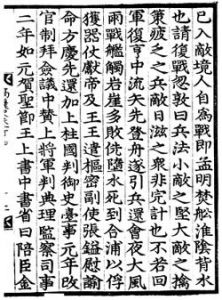 已入敵境人自爲戰即孟明焚船淮陰背水
也請復戰忽敦曰兵法小敵之堅大敵之擒
策疲乏之兵敵日滋之衆非完計也不若回
軍復亨中流矢先登舟遂引兵還會夜大風
雨戰艦觸岩崖多敗侁墮水死到合浦以俘
獲器仗獻帝及王王遣樞密副使張鎰慰諭
命方慶先還加上柱國判御史臺事元年改
官制拜僉議中贊上將軍判典理監察司事
二年如元賀聖節王上書中書省曰陪臣金